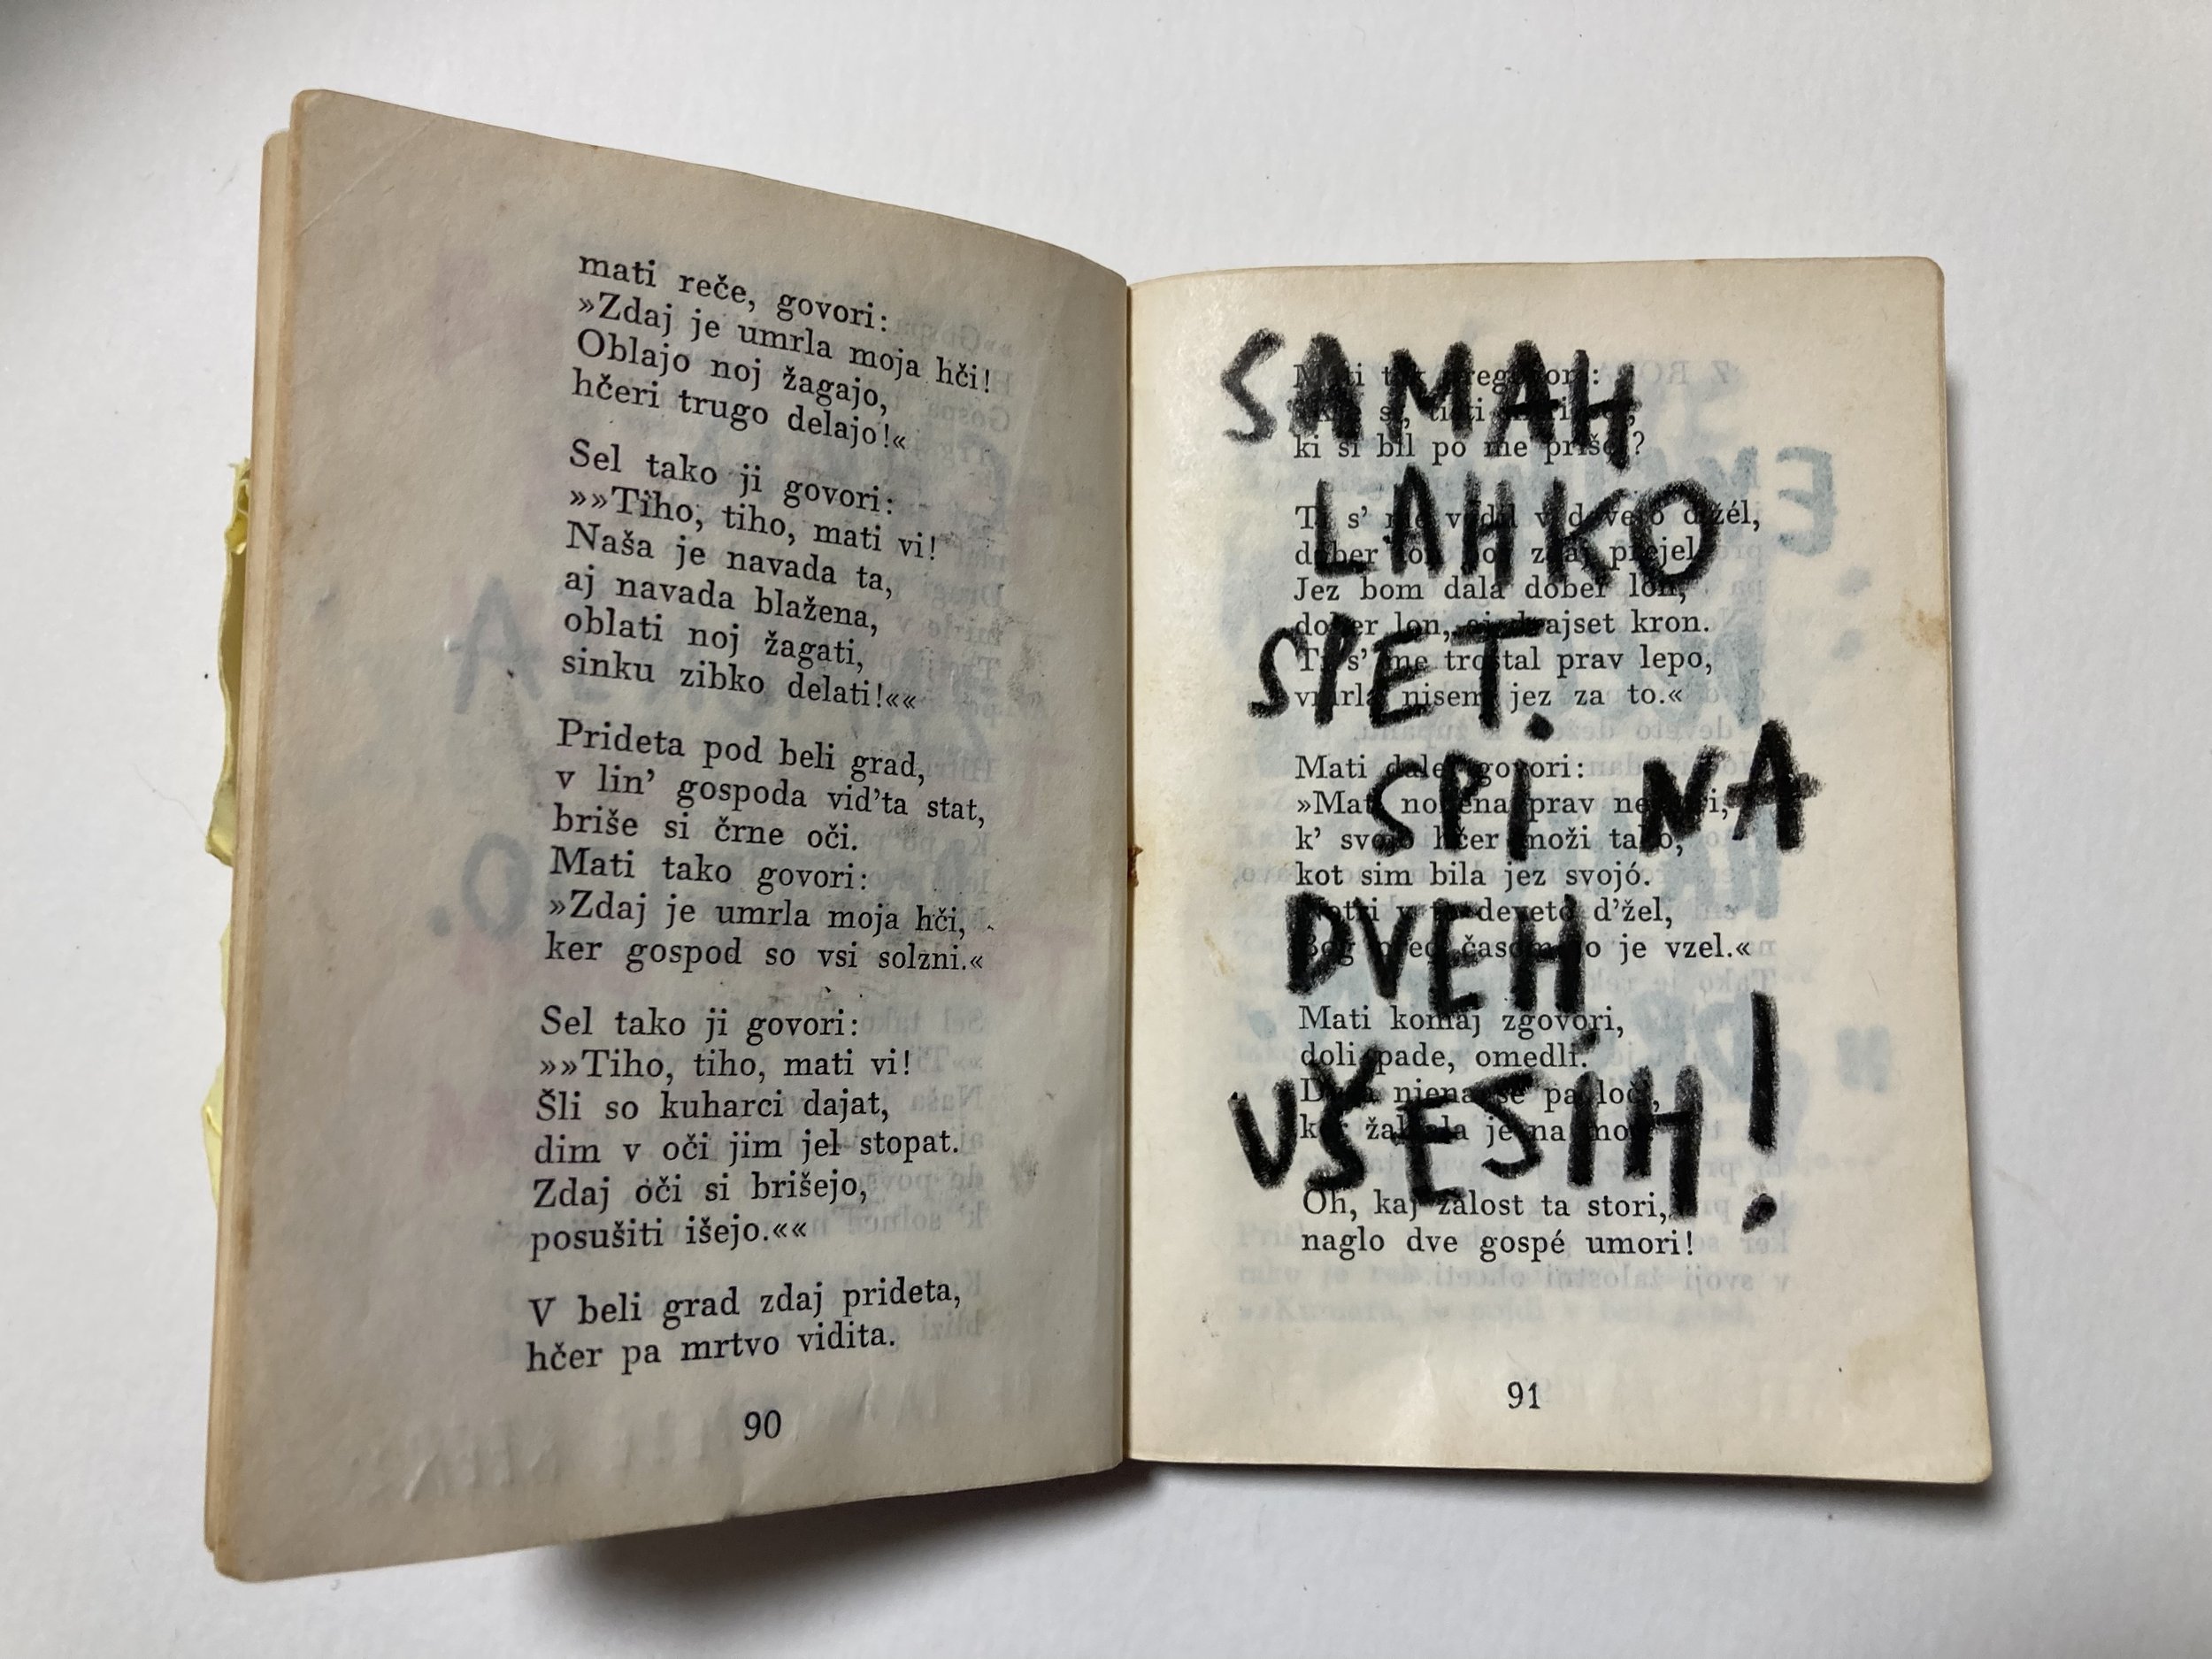 mati reče, govori:
»Zdaj je umrla moja hči!
Oblajo noj žagajo,
hčeri trugo delajo!«
Sel tako ji govori:
»»Tiho, tiho, mati vi!
Naša je navada ta,
aj navada blažena,
oblati noj žagati,
sinku zibko delati!««
Prideta pod beli grad,
v lin’ gospoda vid’ta stat,
briše si črne oči.
Mati tako govori:
»Zdaj je umrla moja hči,
ker gospod so vsi solzni.«
Sel tako ji govori:
»»Tiho, tiho, mati vi!
Šli so kuharci dajat,
dim v oči jim jel stopat.
Zdaj oči si brišejo,
posušiti išejo.««
V beli grad zdaj prideta,
hčer pa mrtvo vidita.
90
SAMAH
LAHKO
SPET.
SPI NA
DVEH
UŠESIH!
Mati
ki si bil po me prišel?
dober zdaj prejel
Jez bom dala dober lon,
dober lon, kron.
me troštal prav lepo,
nisem jez za to.«
Mati govori:
prav
k’ svojo hčer moži tako,
kot sim bila jez svojó.
deveto d’žel,
je vzel.«
Mati komaj zgovori,
doli pade, omedli.
njena se
je na
Oh, kaj žalost ta stori,
naglo dve gospé umori!
91